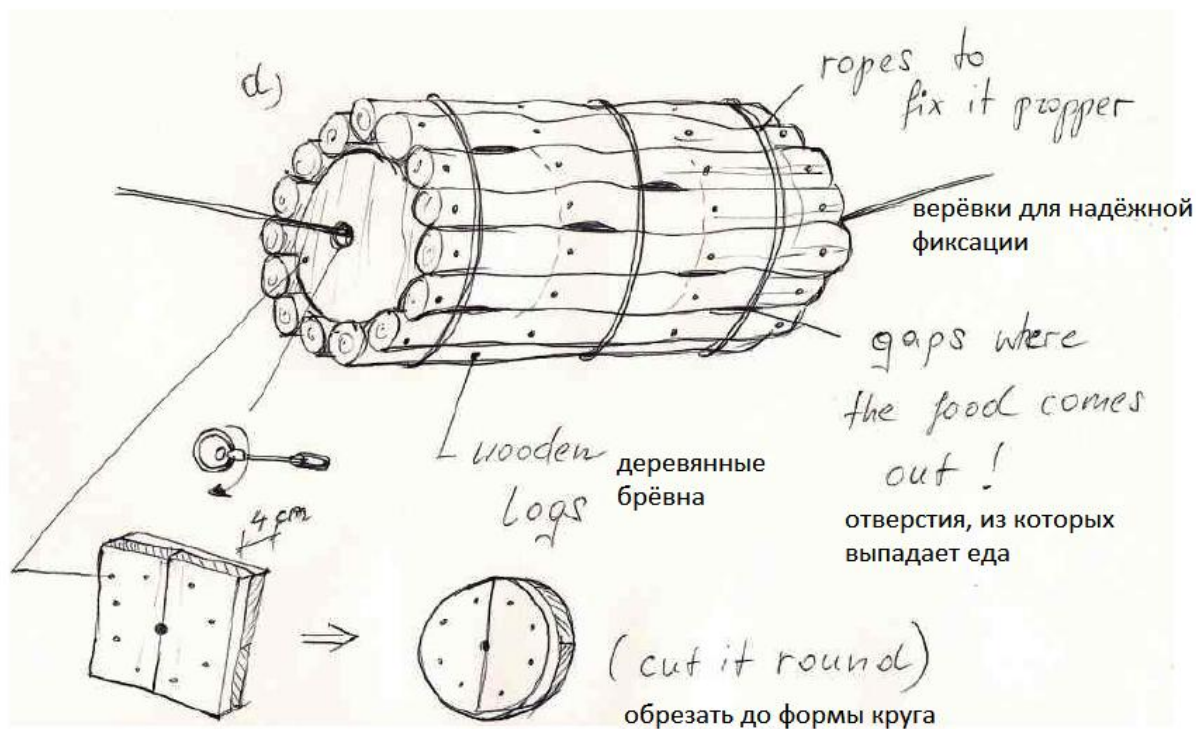 d)
ropes to
fix it propper
верёвки для надёжной
фиксации
gaps where
the food comes
out !
отверстия, из которых
выпадает еда
wooden
logs
деревянные
брёвна
4 cm
(cut it round)
обрезать до формы круга